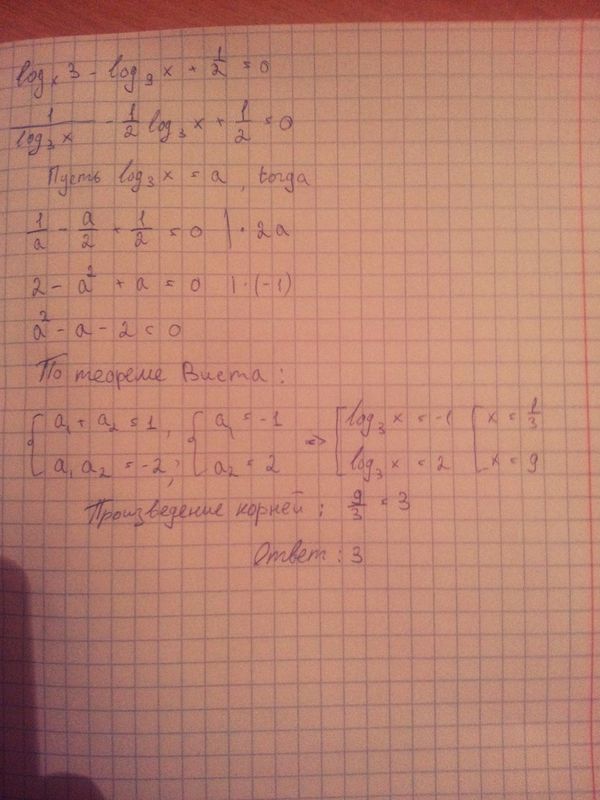 logₓ 3 - log₉ x + 1/2 = 0
1/log₃ x - 1/2 log₃ x + 1/2 = 0
Пусть log₃ x = a, тогда
1/a - a/2 + 1/2 = 0 | · 2a
2 - a² + a = 0 | · (-1)
a² - a - 2 = 0
По теореме Виета:
{ a₁ + a₂ = 1, { a₁ = -1 => [ log₃ x = -1 [ x = 1/3
a₁ a₂ = -2; a₂ = 2 log₃ x = 2 x = 9
Произведение корней: 9/3 = 3
Ответ: 3